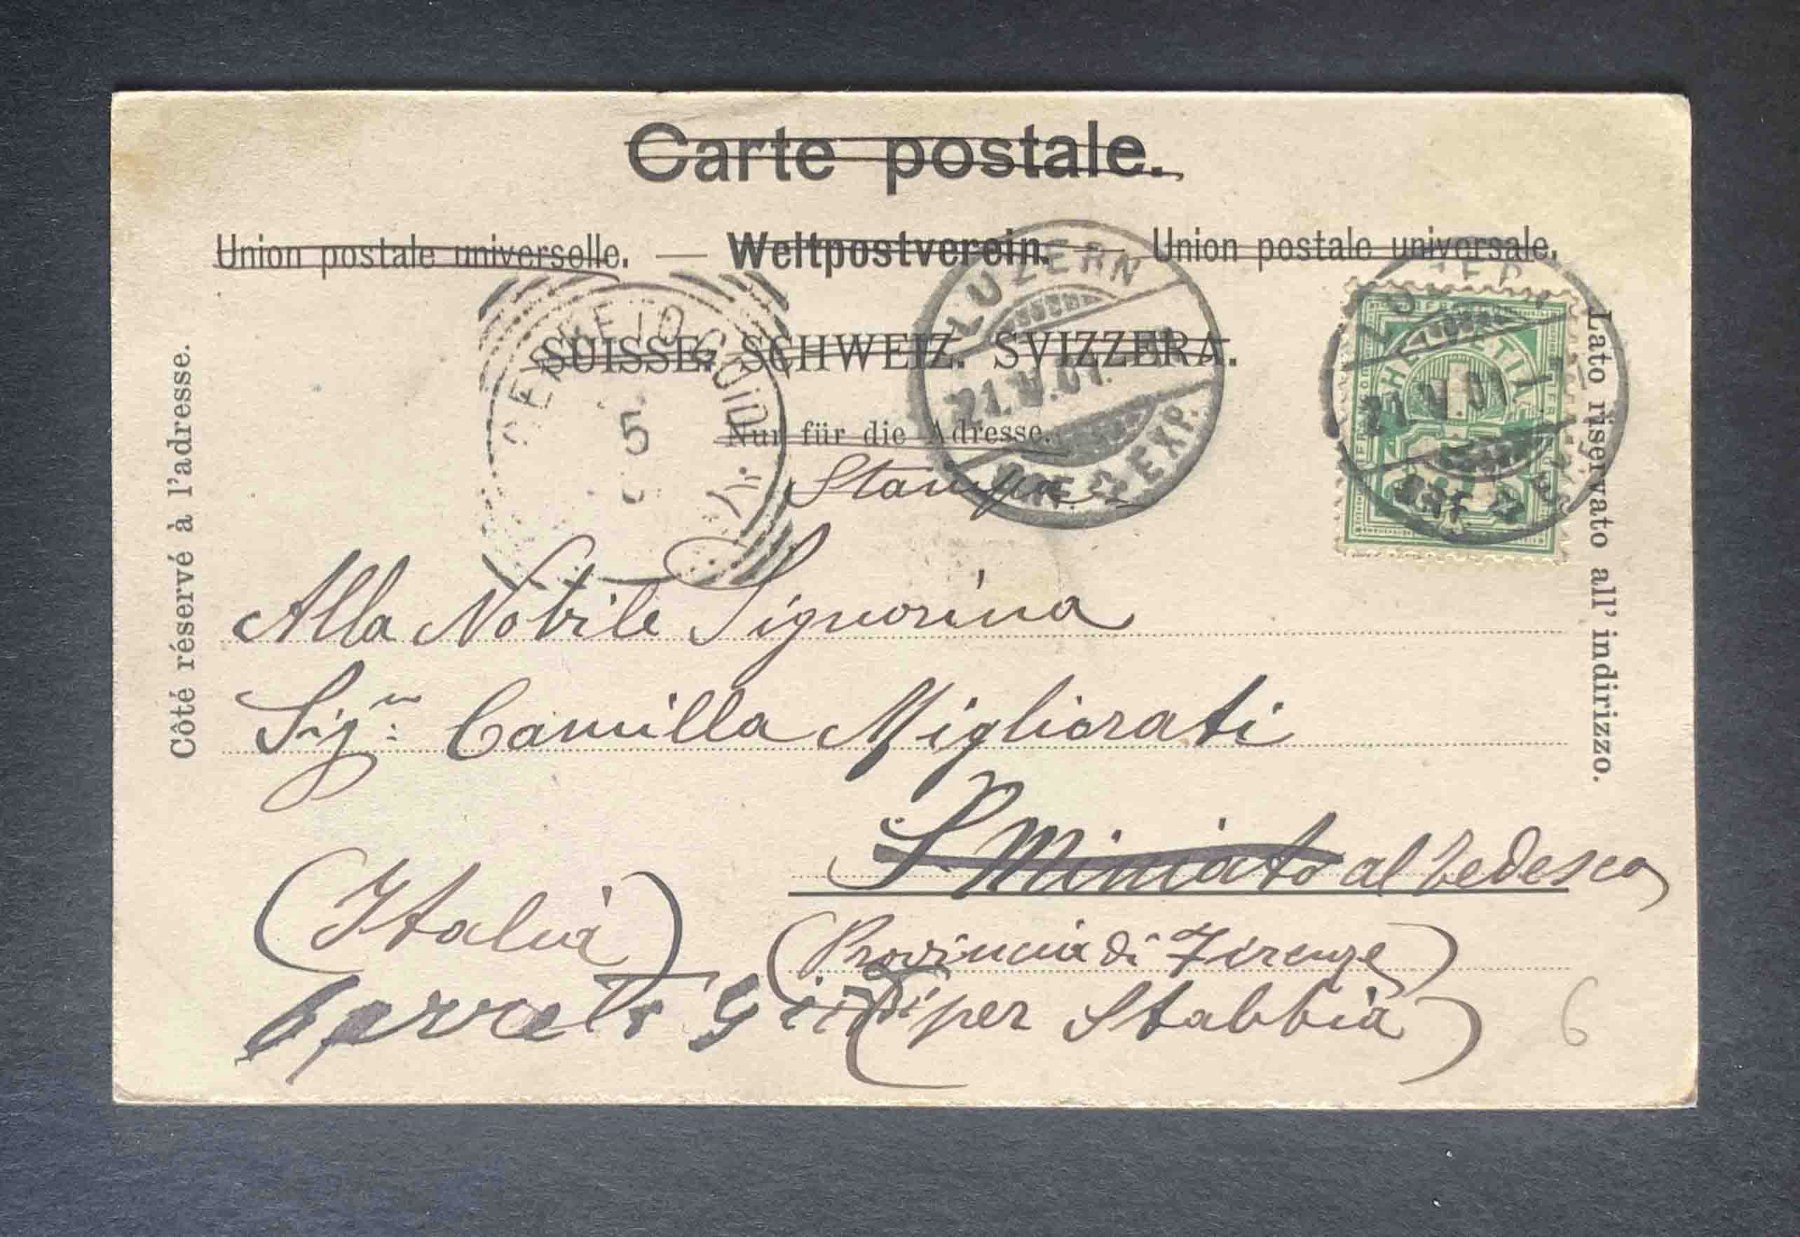 Carte postale.
Union postale universelle. — Weltpostverein. — Union postale universale.
SUISSE. SCHWEIZ. SVIZZERA.
Nur für die Adresse.
Côté réservé à l'adresse.
Lato riservato all' indirizzo.
LUZERN
21.V.01.
BRF. EXP.
CERRETO GUIDI
5
HELVETIA
LUZERN
21.V.01
BRF. EXP.
Stampe
Alla Nobile Signorina
Sig.na Camilla Migliorati
S. Miniato al Tedesco
(Italia)
(Provincia di Firenze)
Cerreto Guidi
(per Stabbia)
6